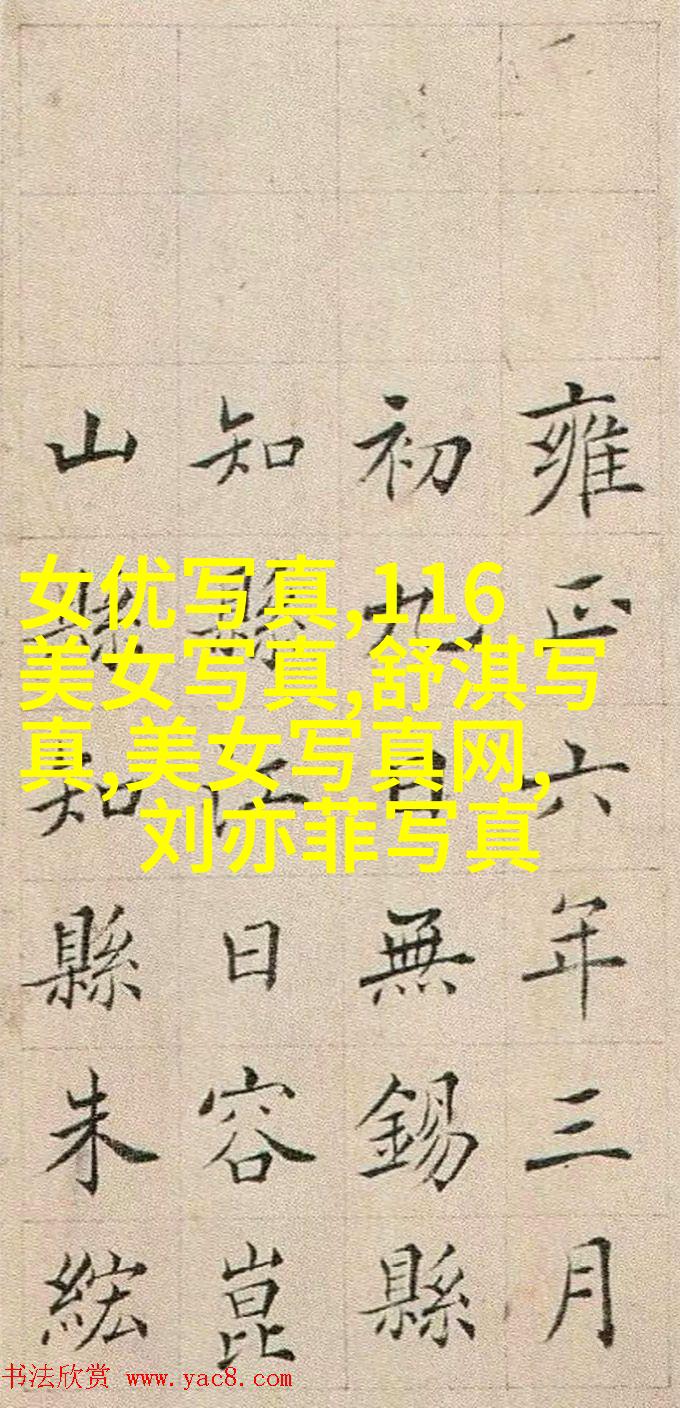 雍正六年三月
初九日無錫縣
知縣江日容崑
山縣知縣朱紘
女优写真,116
美女写真,舒淇写
真,美女写真网,
刘亦菲写真
书法欣赏 www.yac8.com